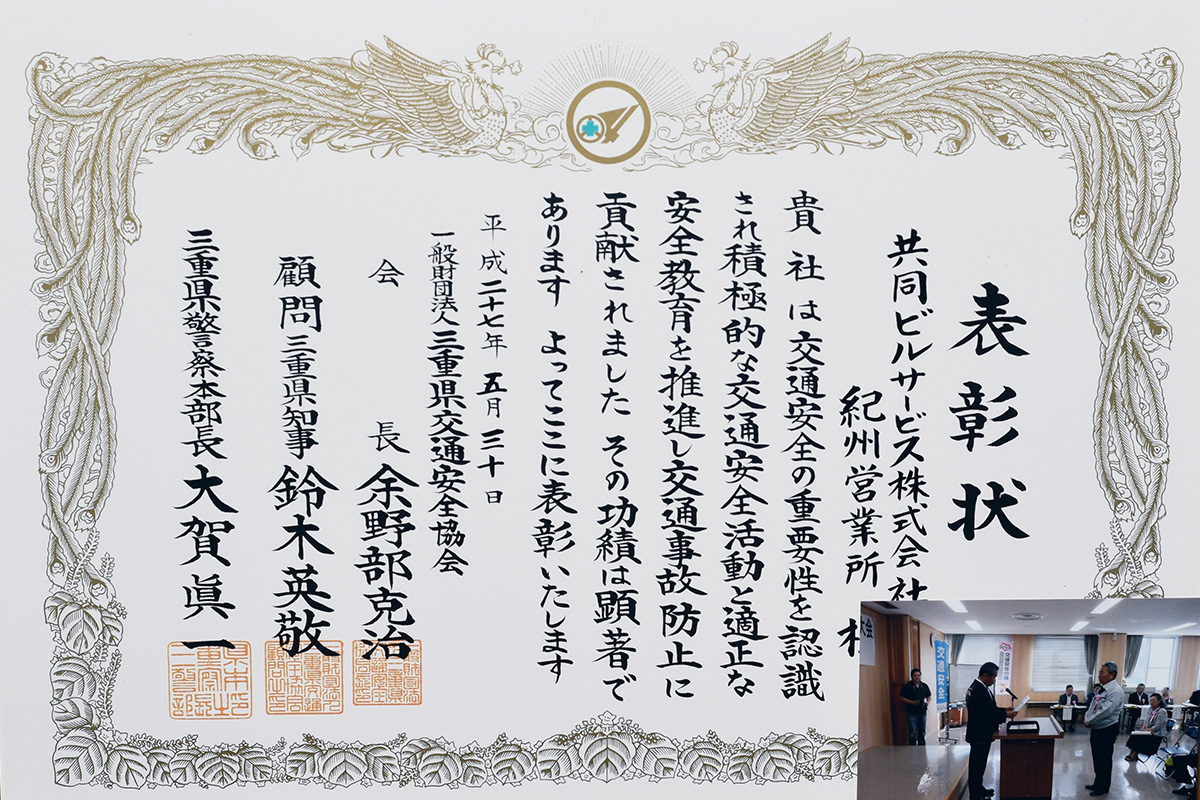 表彰状
共同ビルサービス株式会社
紀州営業所 様
貴社は交通安全の重要性を認識
され積極的な交通安全活動と適正な
安全教育を推進し交通事故防止に
貢献されました その功績は顕著で
あります よってここに表彰いたします
平成二十七年五月三十日
一般財団法人三重県交通安全協会
会長 余野部克治
顧問三重県知事 鈴木英敬
三重県警察本部長 大賀眞一
大会
交通安全